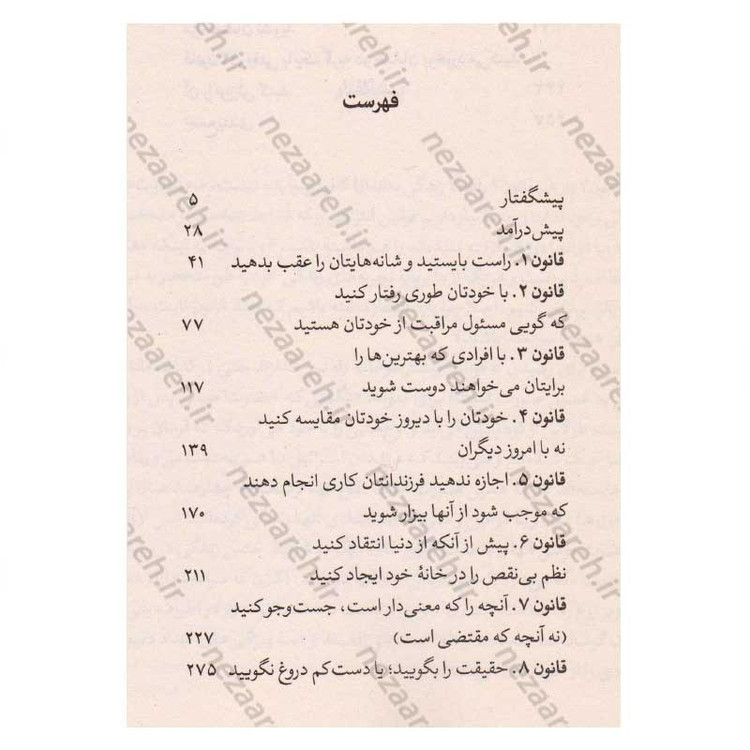 فهرست
پیشگفتار ۵
پیش‌درآمد ۲۸
قانون ۱. راست بایستید و شانه‌هایتان را عقب بدهید ۴۱
قانون ۲. با خودتان طوری رفتار کنید
که گویی مسئول مراقبت از خودتان هستید ۷۷
قانون ۳. با افرادی که بهترین‌ها را
برایتان می‌خواهند دوست شوید ۱۱۷
قانون ۴. خودتان را با دیروز خودتان مقایسه کنید
نه با امروز دیگران ۱۳۹
قانون ۵. اجازه ندهید فرزندانتان کاری انجام دهند
که موجب شود از آنها بیزار شوید ۱۷۰
قانون ۶. پیش از آنکه از دنیا انتقاد کنید
نظم بی‌نقص را در خانهٔ خود ایجاد کنید ۲۱۱
قانون ۷. آنچه را که معنی‌دار است، جست‌وجو کنید
(نه آنچه که مقتضی است) ۲۲۷
قانون ۸. حقیقت را بگویید؛ یا دست‌کم دروغ نگویید ۲۷۵
nezaareh.ir